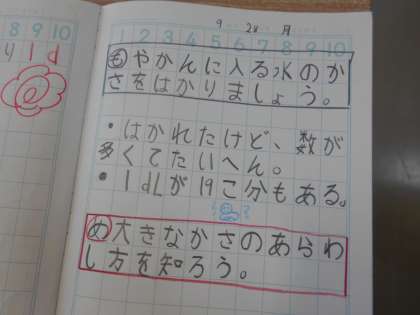 8 9 10
1d
9 28 月
1 2 3 4 5 6 7 8 9 10
も やかんに入る水のか
さをはかりましょう。
・はかれたけど、数が
多くてたいへん。
・1dLが19こ分もある。
め 大きなかさのあらわ
し方を知ろう。